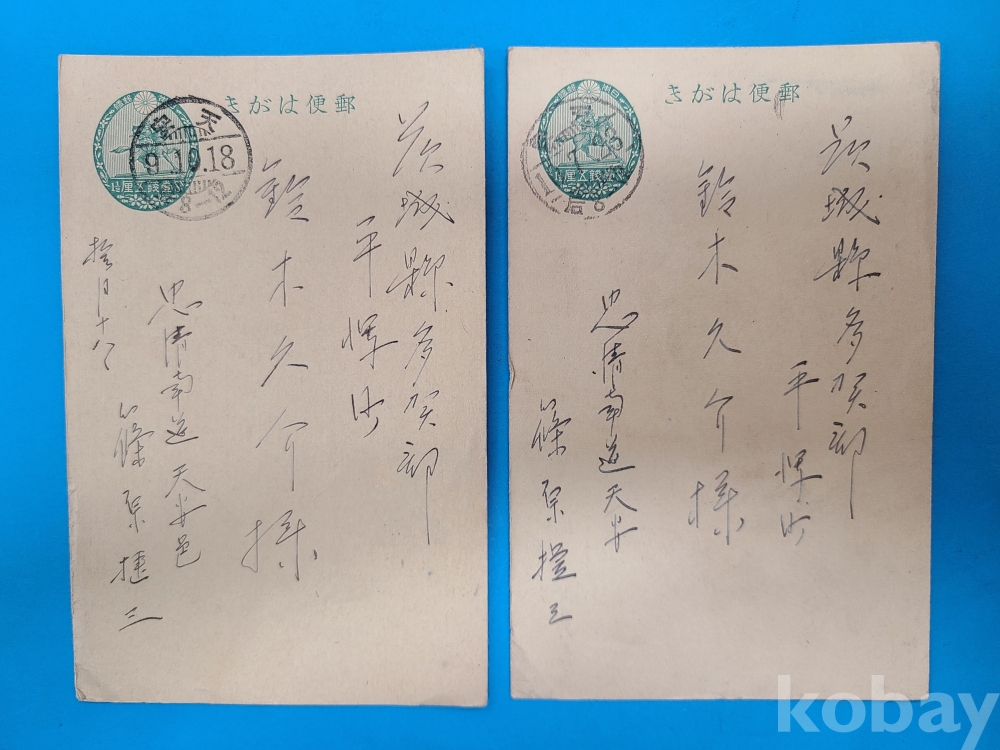 きがは便郵
天安
9.10.18
8-12
壹錢五厘
茨城縣多賀郡
平潟町
鈴木久介様
忠清南道天安邑
篠原捷三
拾月十八
きがは便郵
壹錢五厘
茨城縣多賀郡
平潟町
鈴木久介様
忠清南道天安
篠原捷三
kobay